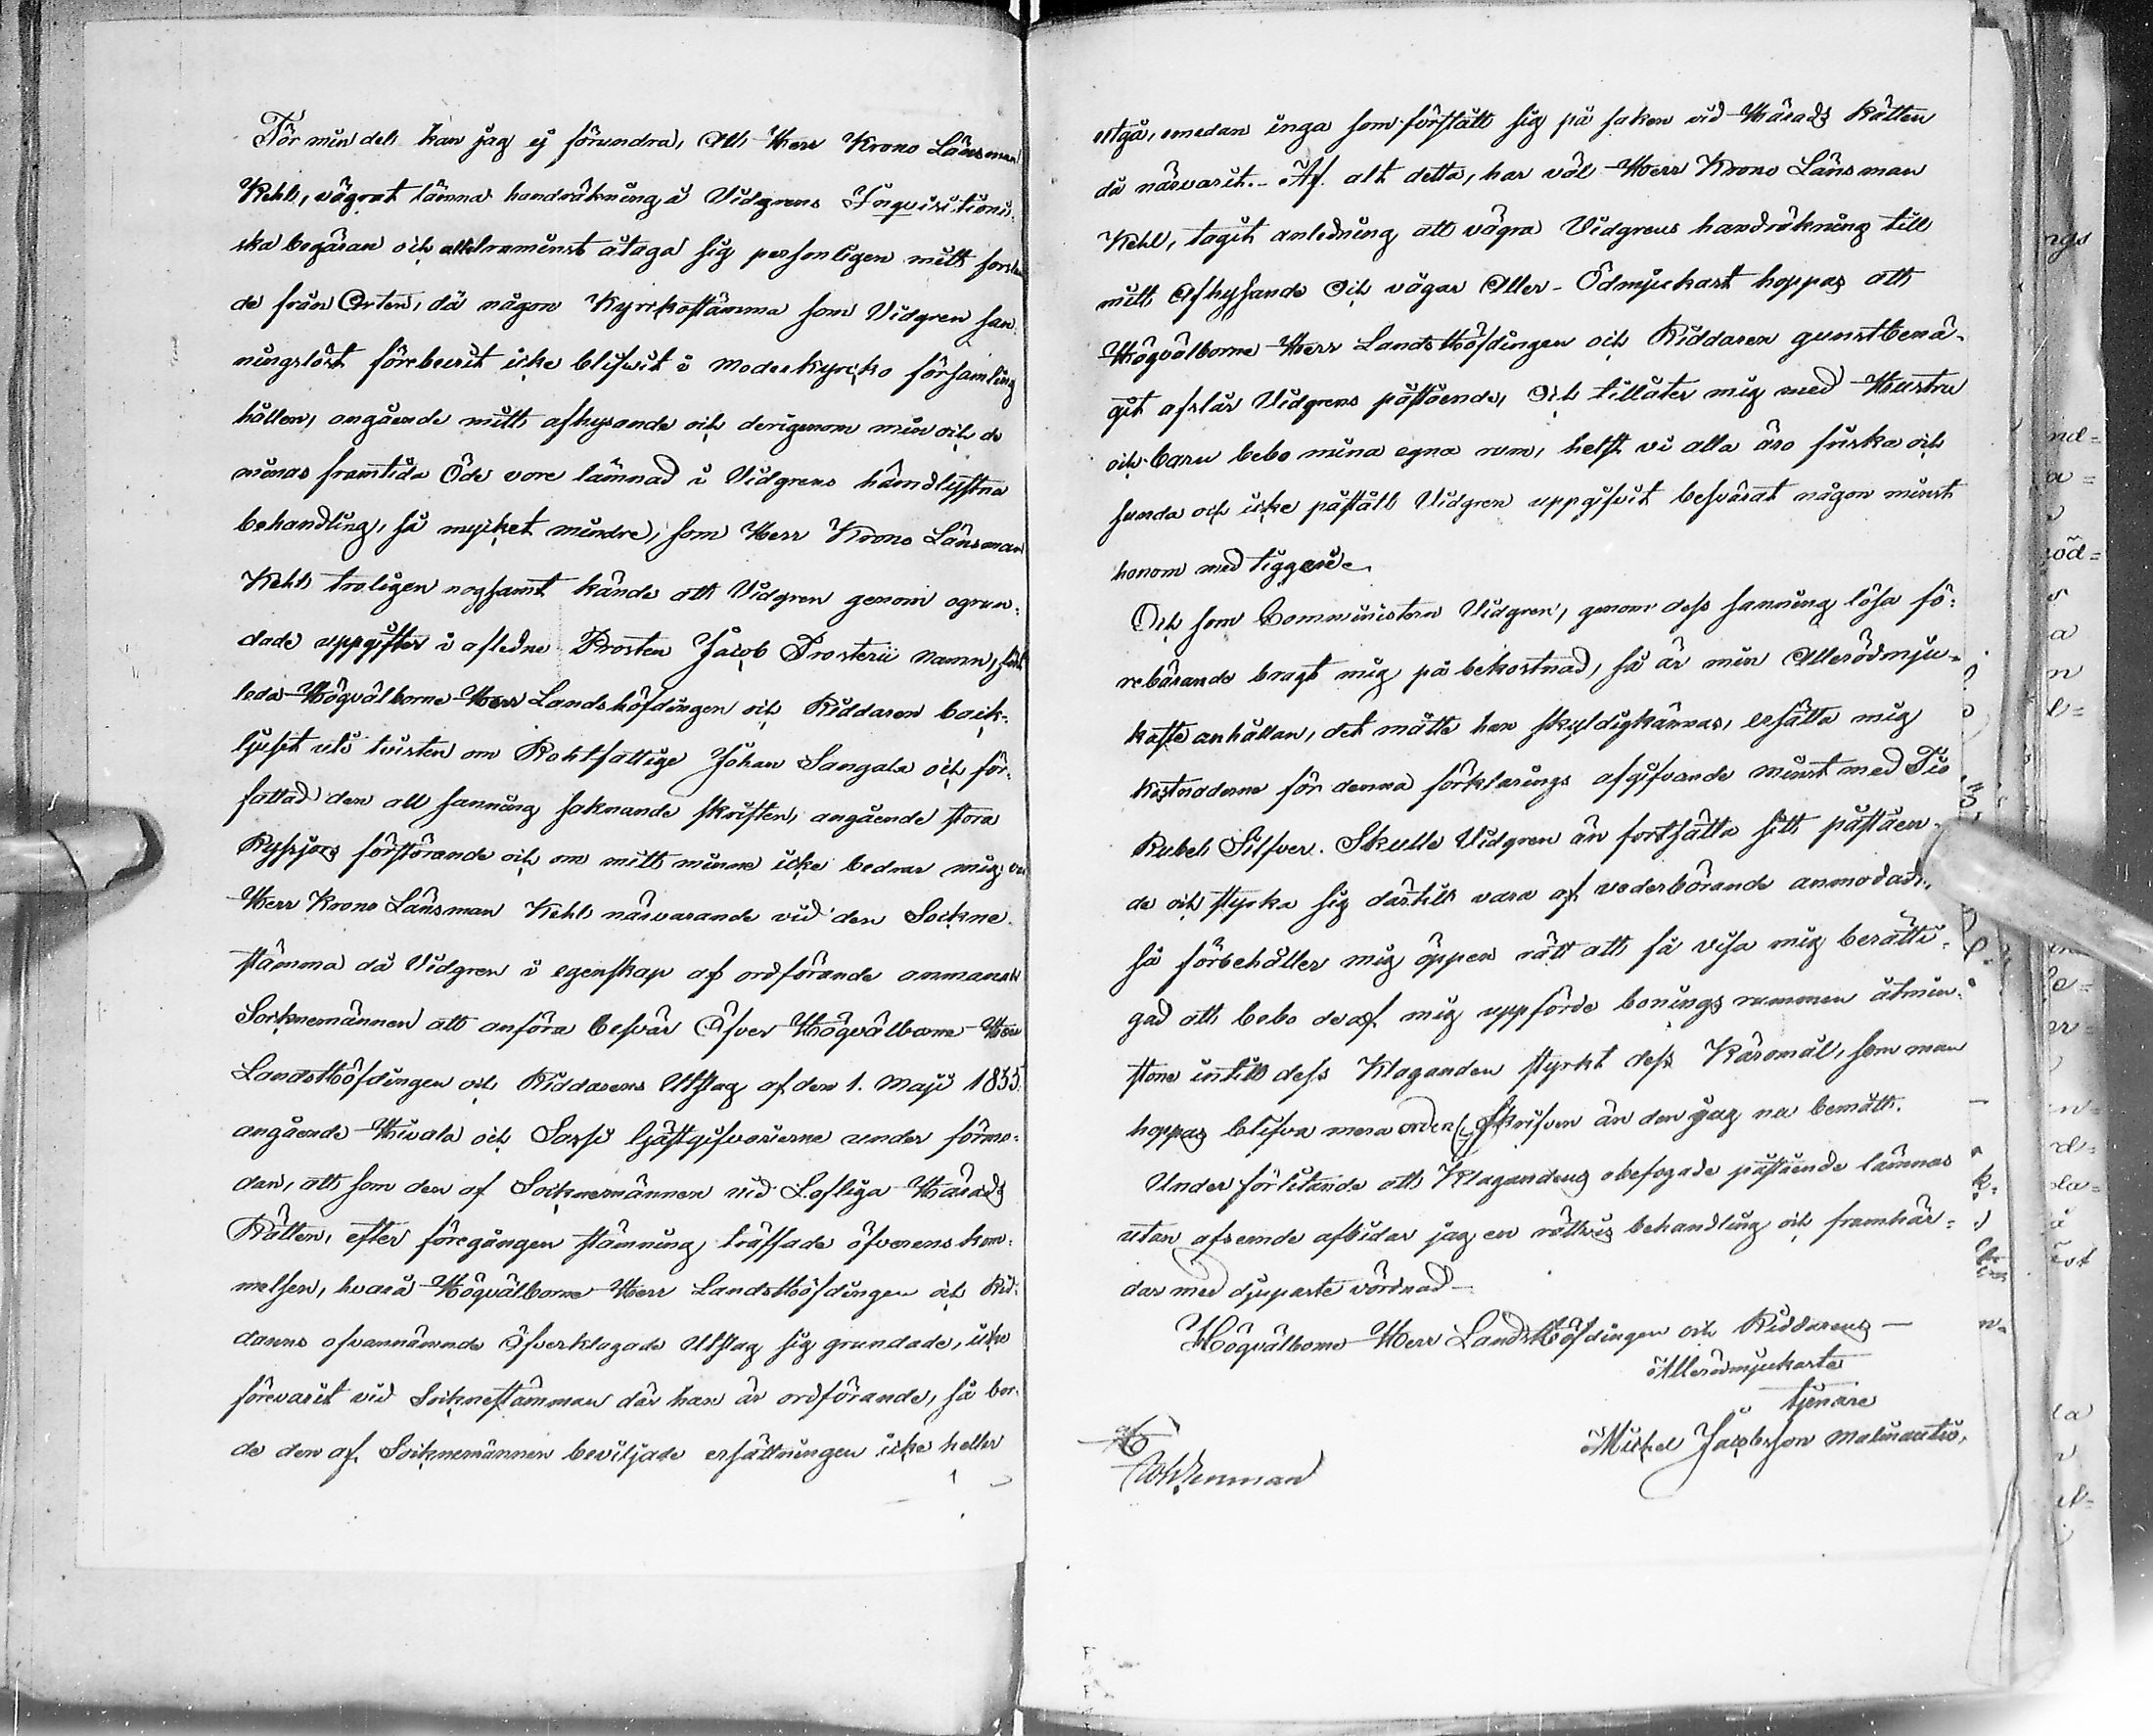 För min del kan jag ej förundra, Att Herr Krono Länsman
Kehl, vägrat lämna handräkning å Vidgrens Inquisitions-
ska begäran och allraminst åtaga sig personligen mitt forslan
de från Orten, då någon Kyrkostämma som Vidgren san-
ningslöst föreburit icke blifwit i Moderkyrcko församling
hållen, angående mitt afhysande och derigenom min och de
minas framtida Öde vore lämnad i Vidgrens hämdlystna
behandling, så mycket mindre, som Herr Krono Länsman
Kehl troligen nogsamt kände att Vidgren genom ogrun-
dade uppgifter i aflidne Prosten Jacob Prosterii namn,
leda Högvälborne Herr Landshöfdingen och Riddaren
ljusit uti tvisten om Rohtfattige Johan Sangala och för-
fattad den all sanning saknande skriften, angående stora
förstörande och om mitt minne icke bedrar mig
Herr Krono Länsman Kehl närvarande vid den Sockne
stämma då Vidgren i egenskap af ordförande anmanat
Socknemännen att anföra besvär Öfver Högvälborne Herr
LandsHöfdingen och Riddarens Utslag af den 1. Maji 1855.
angående Hivala och Sarsi Gästgifverierne under förmo-
dan, att som den af Socknemännen vid Lofliga Härads
Rätten, efter föregången stämning träffade öfverens kom-
melsen, hvarå Högvälborne Herr LandsHöfdingen och Rid-
darens ofvannämnde Öfverklagade Utslag sig grundade, icke
förevarit vid Socknestämman där han är ordförande, så bor-
de den af Socknemännen beviljade ersättningen icke heller
utgå, emedan inga som förstått sig på saken vid Härads Rätten
då närvarit. Af alt detta, har väl Herr Krono Länsman
Kehl, tagit anledning att vägra Vidgrens handräkning till
mitt Afhysande Och vågar Aller-Ödmjuckast hoppas att
Högvälborne Herr LandsHöfdingen och Riddaren gunstbenä-
git afslår Vidgrens påstående, Och tillåter mig med Hustru
och barn bebo mina egna rum, helst vi alla äro friska och
sunda och icke påstått Vidgren uppgifvit besvärat någon minst
honom med tiggeri.
Och som Comministern Vidgren, genom dess sanning lösa fö-
rebärande bragt mig på bekostnad, så är min Allerödmju-
kaste anhållan, det måtte han skyldigkännas, ersätta mig
kostnaderne för denna förklarings afgifvande minst med Tio
Rubel Silfver. Skulle Vidgren än fortsätta sitt påståen-
de och styrka sig därtill vara af vederbörande anmodad,
så förbehåller mig öppen rätt att få visa mig berätti-
gad att bebo de af mig uppförde bonings rummen åtmin-
stone intill dess Klaganden styrkt dess Käromål, som man
hoppas blifva mera orden skrifven än den jag nu bemött.
Under förlitande att Klagandens obefogade påstående lämnas
utan afseende afbidar jag en rättvis behandling och framhär-
dar med djupaste vördnad
Högvälborne Herr LandsHöfdingen och Riddarens
Allerödmjukaste
tjenare
Michel Jacobsson Malinautio.